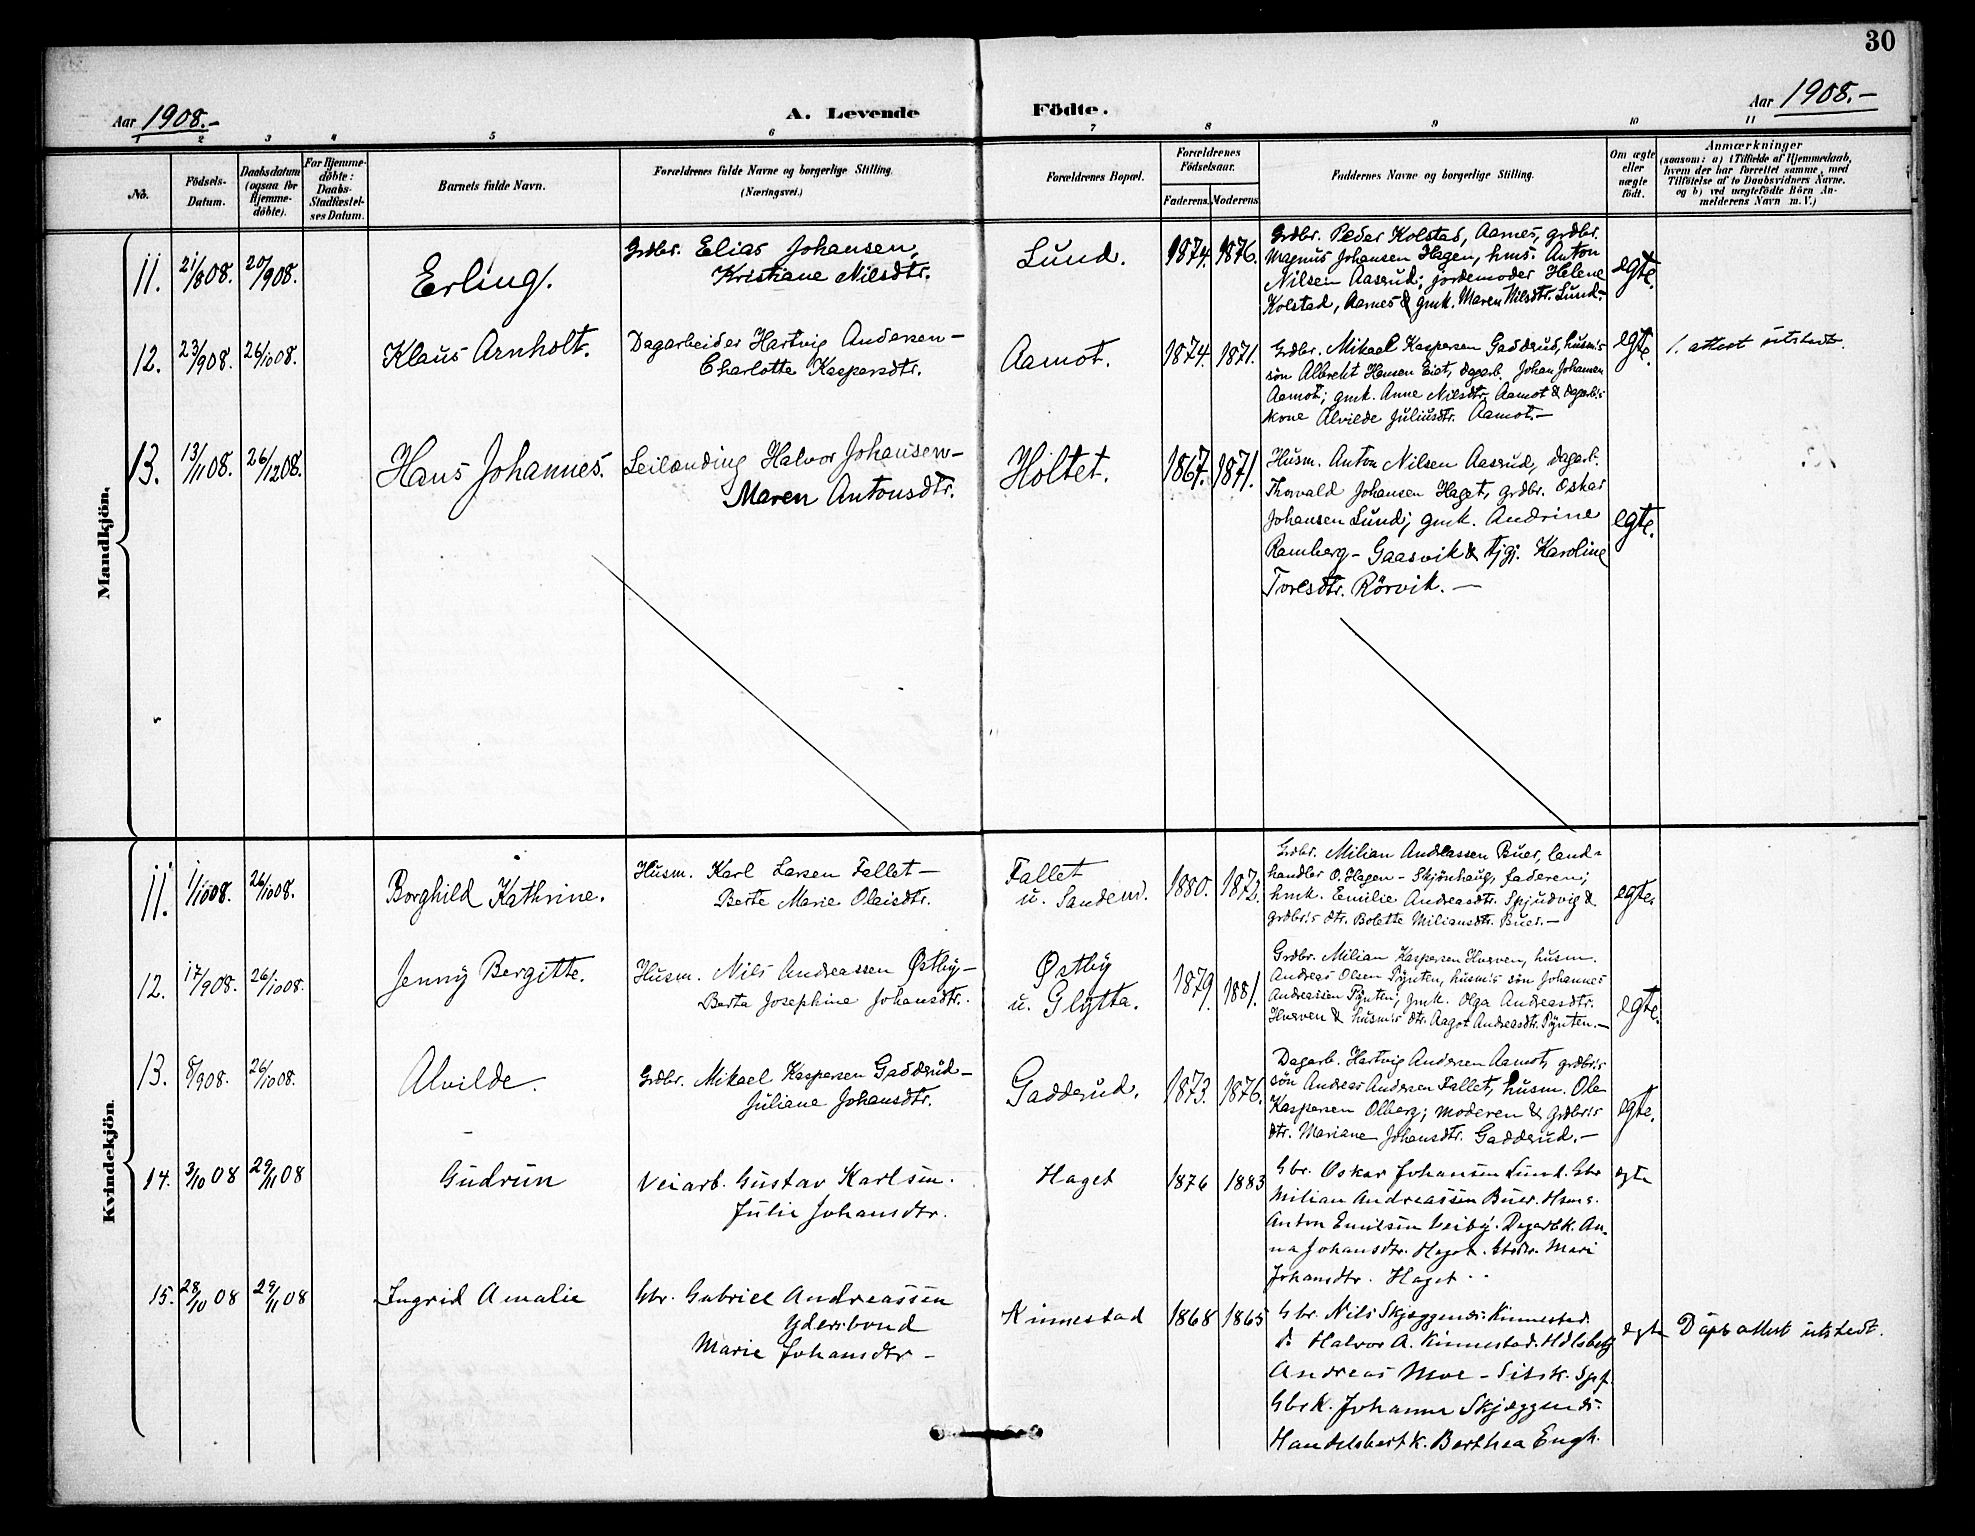 30
Aar 1908.-
A. Levende Födte.
Aar 1908.-
1 2 3 4 5 6 7 8 9 10 11
No.
Födsels-Datum.
Daabsdatum (ogsaa for Hjemme-döbte).
For Hjemme-döbte: Daabs-Stadfæstel-ses Datum.
Barnets fulde Navn.
Forældrenes fulde Navne og borgerlige Stilling.
(Næringsvei.)
Forældrenes Bopæl.
Forældrenes Födselsaar.
Faderens. Moderens.
Faddernes Navne og borgerlige Stilling.
Om ægte eller uægte födt.
Anmærkninger
(saasom: a) i Tilfælde af Hjemmedaab,
hvem der har forrettet samme, med
Tilföielse af to Daabsvidners Navne.
og b) ved uægtefödte Börn An-
melderens Navn m. V.)
Mandkjön.
11. 21/8 08. 20/9 08. Erling.
Grdbr. Elias Johansen,
Kristiane Nilsdtr.
Lund. 1874. 1876.
Grdbr. Peder Kolstad, Aarnes, grdbr.
Magnus Johansen Hagen, hms. Anton
Nilsen Aasrud; jordemoder Helene
Kolstad, Aarnes & gmk. Maren Nilsdtr. Lund.-
egte.
12. 23/9 08. 26/10 08. Klaus Arnholt.
Dagarbeider Hartvig Andersen -
Charlotte Kaspersdtr.
Aamot. 1874. 1871.
Grdbr. Mikael Kaspersen Gadderud, husm's
søn Albrekt Hansen Eiet, dagarb. Johan Johansen
Aamot; gmk. Anne Nilsdtr. Aamot & dagarb's
kone Alvilde Juliusdtr. Aamot.-
egte.
1. attest utstedt.
13. 13/11 08. 26/12 08. Hans Johannes.
Leilænding Halvor Johansen -
Maren Antonsdtr.
Holtet. 1867. 1871.
Husm. Anton Nilsen Aasrud, dagarb.
Thorvald Johansen Haget, grdbr. Oskar
Johansen Lund; gmk. Andrine
Ramberg - Gaasvik & tjgj. Karoline
Toresdtr. Rörvik. -
egte.
Kvindekjön.
11. 1/10 08. 26/10 08. Borghild Kathrine.
Husm. Karl Larsen Fallet -
Berte Marie Olaisdtr.
Fallet
u. Sandem. 1880. 1872.
Grdbr. Milian Andreassen Buer, land-
handler O. Hagen - Skjönhaug, faderen;
hmk. Emilie Andreasdtr. Spjudvig &
grdbr's dtr. Bolette Miliansdtr. Buer.-
egte.
12. 17/9 08. 26/10 08. Jenny Bergitte.
Husm. Nils Andreassen Østby -
Berta Josephine Johansdtr.
Østby
u. Glytta. 1879. 1881.
Grdbr. Milian Kaspersen Hurven, husm.
Andreas Olsen Pynten, husm's søn Johannes
Andreassen Pynten; gmk. Olga Andreasdtr.
Hurven & husm's dtr. Aagot Andreasdtr. Pynten.-
egte.
13. 8/9 08. 26/10 08. Alvilde.
Grdbr. Mikael Kaspersen Gadderud -
Juliane Johansdtr.
Gadderud. 1873. 1876.
Dagarb. Hartvig Andersen Aamot, grdbr's
søn Andreas Andersen Fallet, husm. Ole
Kaspersen Olberg; moderen & grdbr's
dtr. Mariane Johansdtr. Gadderud.-
egte.
14. 3/10 08 29/11 08 Gudrun
Veiarb. Gustav Karlsen.
Julie Johansdtr.
Haget 1876 1883
Gbr. Oskar Johansen Lund. Gbr
Milian Andreassen Buer. Hsmg.
Anton Emilsen Veiby. Dagarbk. An-
na Johansdtr. Haget. Mari
Johansdtr. Haget..
egte
15. 28/10 08 29/11 08 Ingrid Amalie
Gbr. Gabriel Andreassen
Ydersbond
Marie Johansdtr -
Kinnestad 1868 1865
Gbr. Nils Skjæggenæs Kinnestad.
d. Halvor A. Kinnestad.
Andreas Moe -
Gbrk. Johanne Skjæggenæs.
Handelsbestk. Berthea Engh.
egte
Döpsattest utstedt.